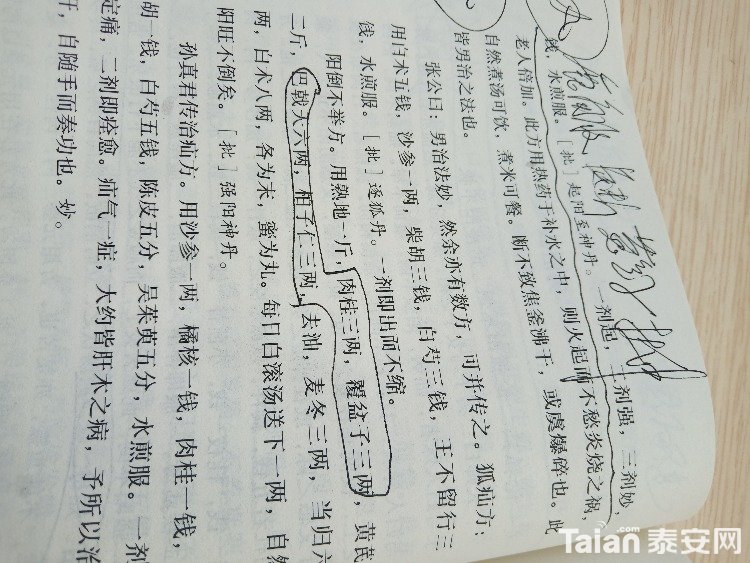 钱，水煎服。[批]起阳至神丹。一剂起，二剂强，三剂妙，
老人倍加。此方用热药于补水之中，则火起而不愁炎烧之祸，
自然煮汤可饮，煮米可餐。断不致焦釜沸干，或虞爆碎也。此
皆男治之法也。
张公曰：男治法妙，然余亦有数方，可并传之。狐疝方：
用白术五钱，沙参一两，柴胡三钱，白芍三钱，王不留行三
钱，水煎服。[批]逐狐丹。一剂即出而不缩。
阳倒不举方。用熟地一斤，肉桂三两，覆盆子三两，黄芪
二斤，巴戟天六两，柏子仁三两，去油，麦冬三两，当归六
两，白术八两，各为末，蜜为丸。每日白滚汤送下一两，自然
阳旺不倒矣。[批]强阳神丹。
孙真君传治疝方。用沙参一两，橘核一钱，肉桂一钱，
胡一钱，白芍五钱，陈皮五分，吴茱萸五分，水煎服。一剂
定痛，二剂即痊愈。疝气一症，大约皆肝木之病，予所以治
肝，自随手而奏功也。妙。
Taian.com 泰安网